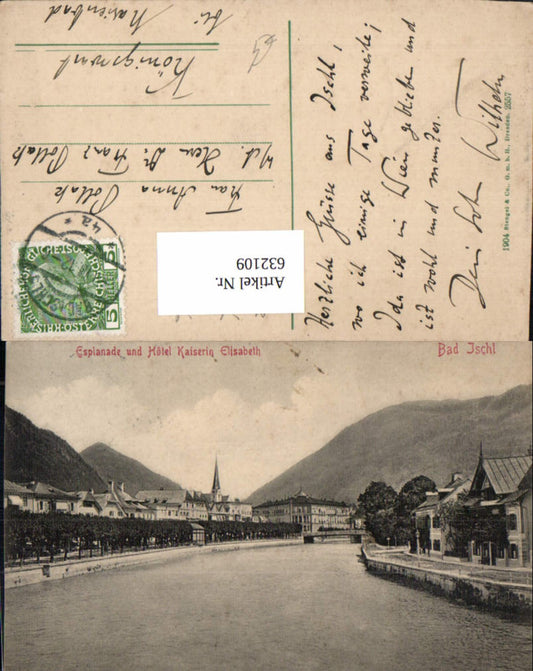 Herzliche Grüsse aus Ischl,
wo ich einige Tage verweile;
Ida ist in Wien geblieben und
ist wohl und munter.
Dein Sohn Wilhelm
1904 Stengel & Co., G. m. b. H., Dresden. 2557
Frau Anna Pollak
Herrn Dr. Franz Pollak
Königswart
bei Marienbad
5
5
Artikel Nr.
632109
Esplanade und Hôtel Kaiserin Elisabeth
Bad Ischl